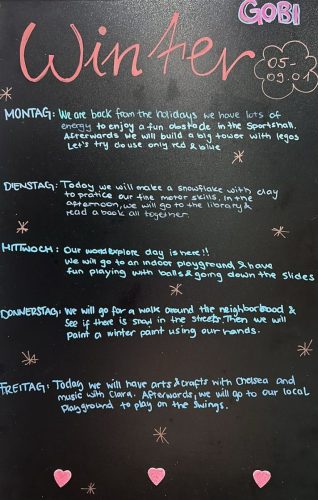 GOBI
Winter
05-
09.01
MONTAG: We are back from the holidays we have lots of
energy to enjoy a fun obstacle in the Sportshall.
Afterwards we will build a big tower with legos
Let's try to use only red & blue
DIENSTAG: Today we will make a snowflake with clay
to pratice our fine motor skills, in the
afternoon, we will go to the library &
read a book all together.
MITTWOCH: Our world explore day is here!!
We will go to an indoor playground & have
fun playing with balls & going down the slides
DONNERSTAG: We will go for a walk around the neighborhood &
see if there is snow in the streets. Then we will
Paint a winter paint using our hands.
FREITAG: Today we will have arts & crafts with Chelsea and
music with Clara. Afterwards, we will go to our local
playground to play on the swings.